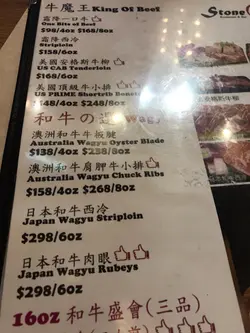 牛魔王King Of Beef
霜降一口牛
One Bite of Beef
$98/4oz $168/8oz
霜降西冷
Striploin
$158/6oz
美國安格斯牛柳
US CAB Tenderloin
$168/6oz
美國頂級牛小排
US PRIME Shortrib Bone
$148/4oz $248/8oz
和牛の選 Wagy
澳洲和牛牛板腱
Australia Wagyu Oyster Blade
$138/4oz $238/8oz
澳洲和牛肩胛牛小排
Australia Wagyu Chuck Ribs
$158/4oz $268/8oz
日本和牛西冷
Japan Wagyu Striploin
$298/6oz
日本和牛肉眼
Japan Wagyu Rubeys
$298/6oz
16oz 和牛盛會(三品)
Stone